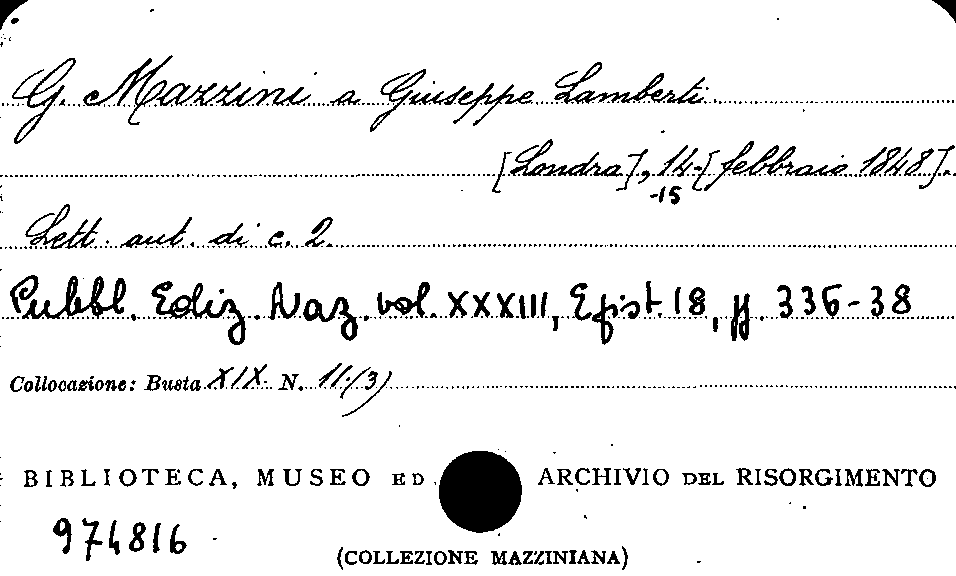 G. Mazzini a Giuseppe Lamberti
[Londra], 14-[febbraio 1848].
-15
Lett. aut. di c. 2.
Pubbl. Ediz. Naz. vol. XXXIII, Epist. 18, pp. 336-38
Collocazione: Busta XIX N. 11.(3)
BIBLIOTECA, MUSEO ED ARCHIVIO DEL RISORGIMENTO
974816
(COLLEZIONE MAZZINIANA)